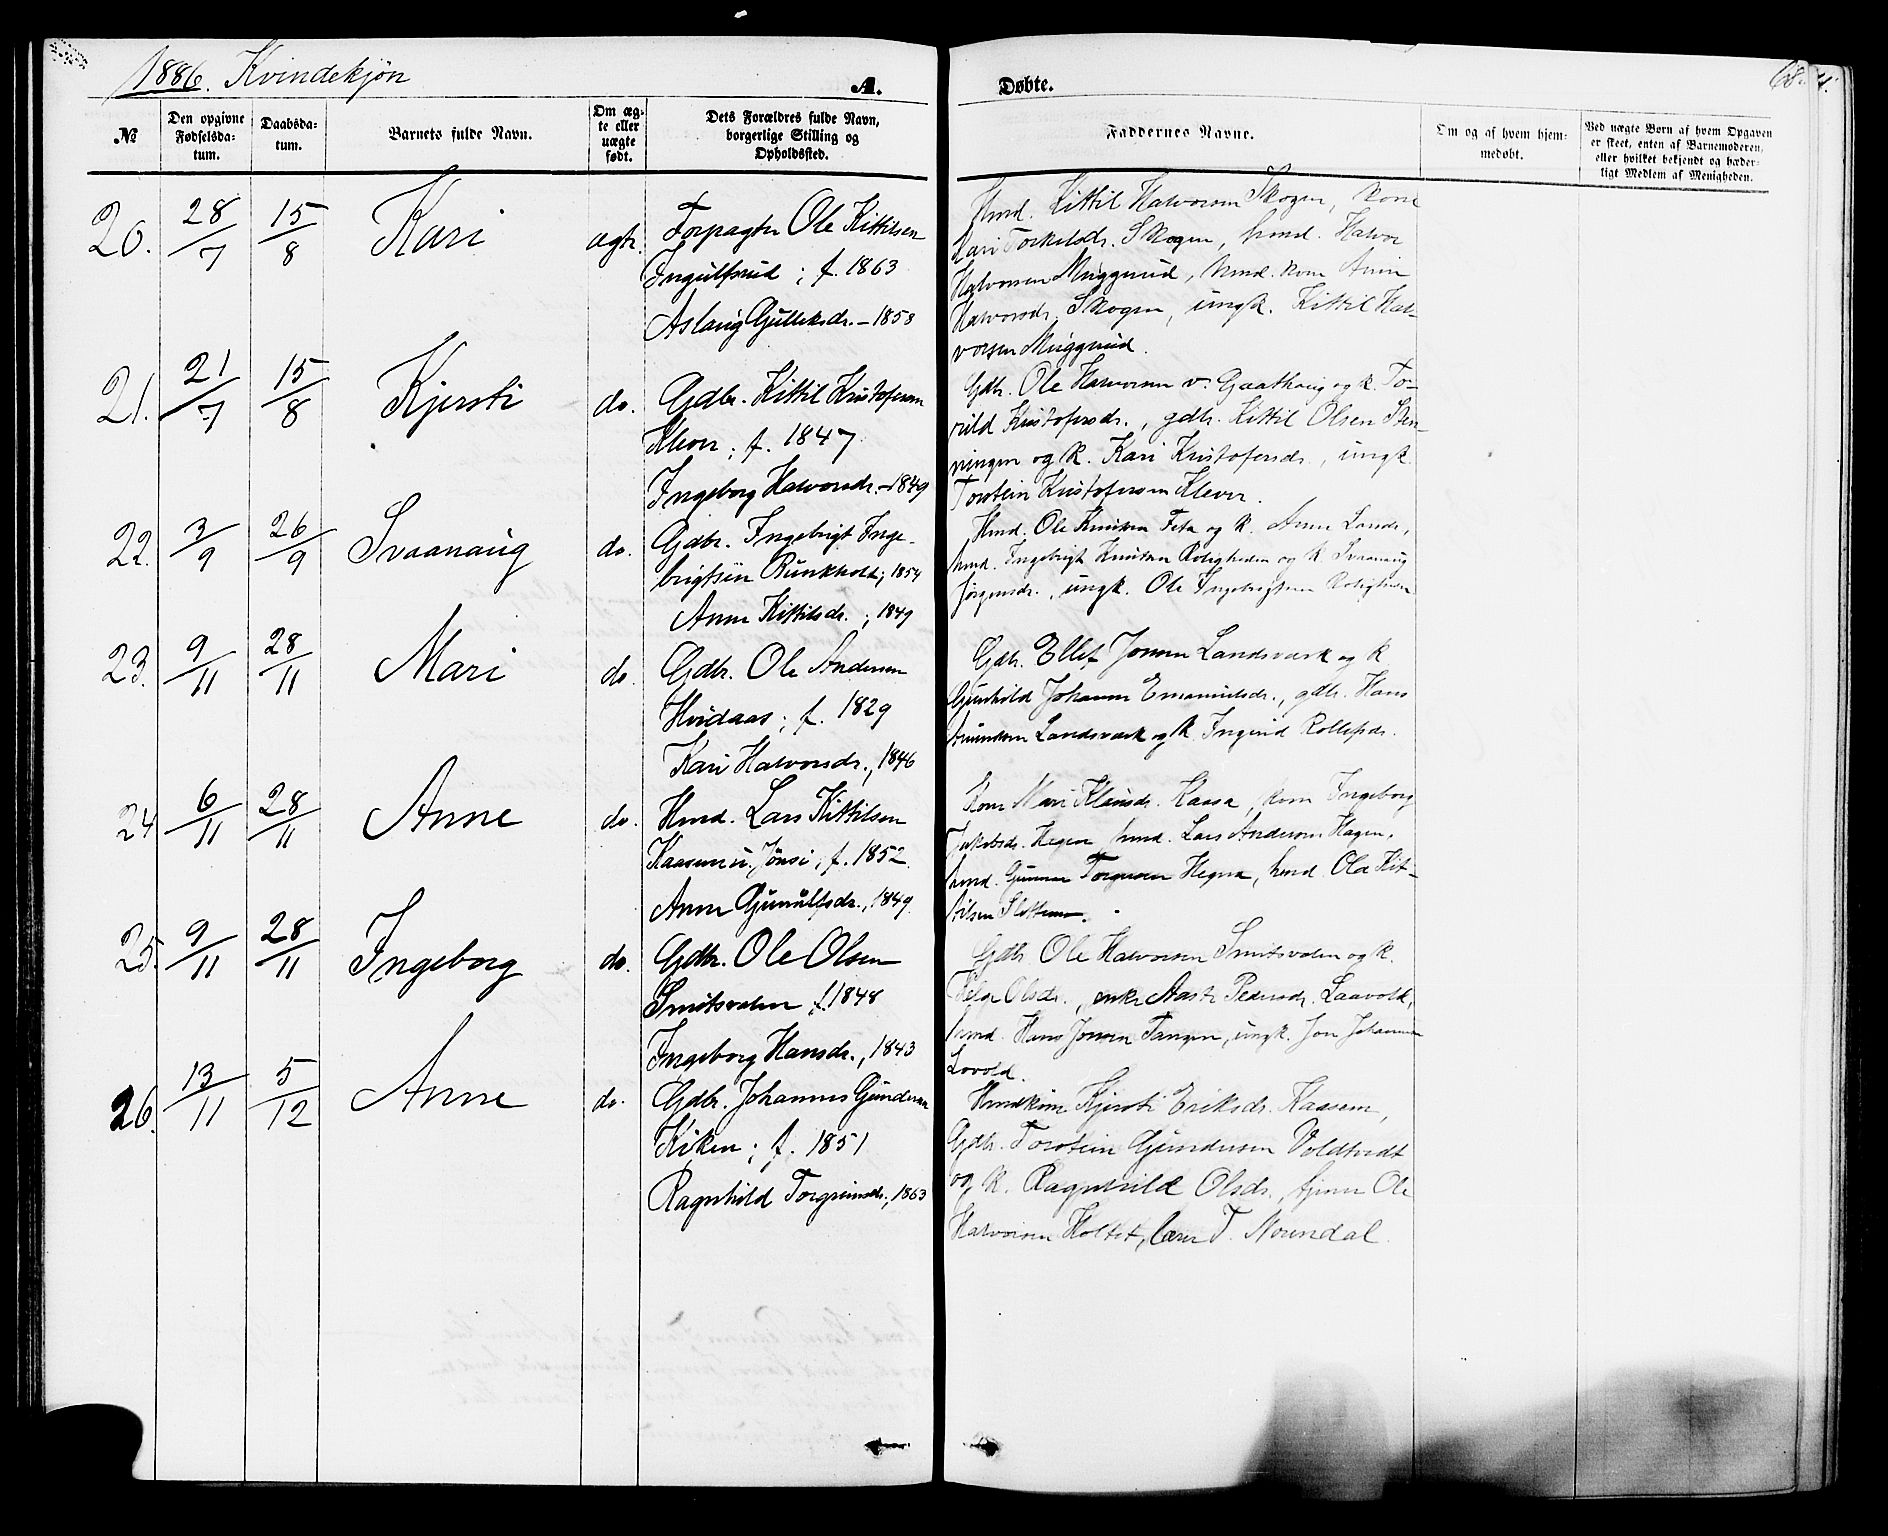 1886. Kvindekjøn
A.
Døbte.
68.
№
Den opgivne Fødselsda-tum.
Daabsda-tum.
Barnets fulde Navn.
Om æg-te eller uægte født.
Dets Forældres fulde Navn, borgerlige Stilling og Opholdssted.
Faddernes Navne.
Om og af hvem hjem-medøbt.
Ved uægte Børn af hvem Opgaven er skeet, enten af Barnemoderen, eller hvilket bekjendt og hæder-ligt Medlem af Menigheden.
20. 28/7 15/8 Kari ægte. Forpagter Ole Kittilsen
Ingulfsrud ; f. 1863
Aslaug Gulleksdr. – 1858
Hmd. Kittil Halvorsen Skogen, kone
Kari Torkilsdr. Skogen, hmd. Halvor
Halvorsen Muggerud, hmd. kone Anne
Halvorsdr. Skogen, ungk. Kittil Hal-
vorsen Muggerud.
21. 21/7 15/8 Kjersti do. Gdbr. Kittil Kristofersen
Klever ; f. 1847
Ingeborg Halvorsdr. – 1849
Gdbr. Ole Halvorsen v. Gaathaug og k. To-
rild Kristofersdr., gdbr. Kittil Olsen Sten-
ningen og k. Kari Kristofersdr., ungk.
Torstein Kristofersen Klever.
22. 3/9 26/9 Svaanaug do. Gdbr. Ingebrigt Inge-
brigtsen Bunkhold ; 1854
Anne Kittilsdr. ; 1849
Hmd. Ole Knutsen Feta og k. Anne Larsdr.,
hmd. Ingebrigt Knutsen Roligheden og k. Svanaug
Jørgensdr., ungk. Ole Ingebrigtsen Roligheden
23. 9/11 28/11 Mari do. Gdbr. Ole Andersen
Hvidaas ; f. 1829
Kari Halvorsdr., 1846
Gdbr. Ellef Jonsen Landsverk og k
Gunhild Johanne Emanuelsdr., gdbr. Hans
Amundsen Landsverk og k. Ingerid Rollefsdr.
24 6/11 28/11 Anne do. Hmd. Lars Kittilsen
Kaasene u. Jønsi ; f. 1852
Anne Gunulfsdr., 1849.
Kone Mari Klausdr. Kaasa, kone Ingeborg
Jakobsdr. Hegna, hmd. Lars Andersen Hagen,
hmd. Gunnar Torgersen Hegna, hmd. Ola Kit-
tilsen Slettemo.
25. 9/11 28/11 Ingeborg do. Gdbr. Ole Olsen
Smutsvolen f. 1848
Ingeborg Hansdr., 1843
Gdbr Ole Halvorsen Smutsvolen og k.
Helge Olsdr., enke Aaste Pedersdr. Laavold,
hmd. Hans Jonsen Tangen, ungk. Jon Johannesen
Lovold.
26. 13/11 5/12 Anne do. Gdbr. Johannes Gundersen
Kiken ; f. 1851
Ragnhild Torgrimsdr., 1863
Hmdkone Kjersti Eriksdr. Kaasene,
Gdbr. Torstein Gundersen Voldtvedt
og k. Ragnhild Olsdr., tjener Ole
Halvorsen Holtet, lærer T. Norendal.